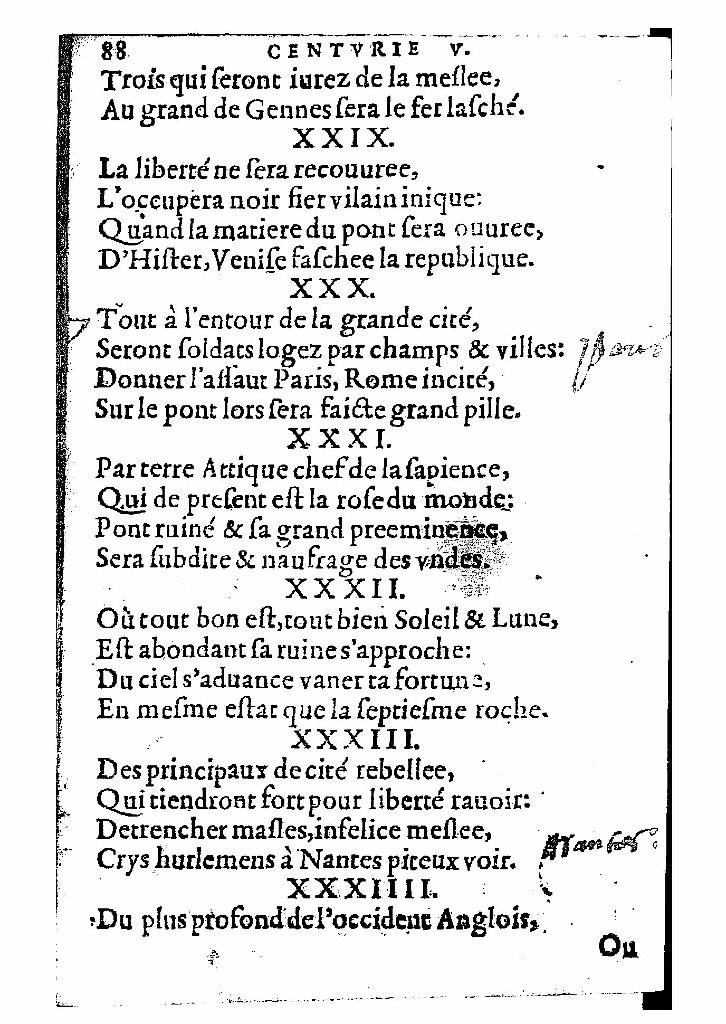 88 CENTVRIE V.
Trois qui ſeront iurez de la meſlee,
Au grand de Gennes ſera le fer laſché.
XXIX.
La liberté ne ſera recouuree,
L'occupera noir fier vilain inique:
Quand la matiere du pont ſera ouuree,
D'Hiſter, Veniſe faſchee la republique.
XXX.
Tout à l'entour de la grande cité,
Seront ſoldats logez par champs & villes:
Donner l'aſſaut Paris, Rome incité,
Sur le pont lors ſera faicte grand pille.
XXXI.
Par terre Attique chef de la ſapience,
Qui de preſent eſt la roſe du monde:
Pont ruiné & ſa grand preeminence,
Sera ſubdite & naufrage des vndes.
XXXII.
Où tout bon eſt, tout bien Soleil & Lune,
Eſt abondant ſa ruine s'approche:
Du ciel s'aduance vaner ta fortune,
En meſme eſtat que la ſeptieſme roche.
XXXIII.
Des principaux de cité rebellee,
Qui tiendront fort pour liberté rauoir:
Detrencher maſles, infelice meſlee,
Crys hurlemens à Nantes piteux voir.
Nantes
XXXIIII.
Du plus profond de l'occident Anglois,
Ou